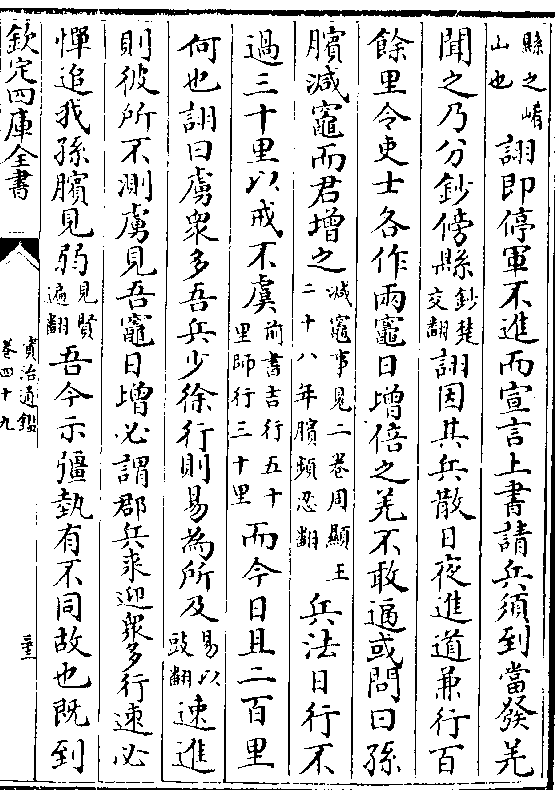 縣之崤山也詡即停軍不進而宣言上書請兵須到當發羌
聞之乃分鈔傍縣鈔楚交翻詡因其兵散日夜進道兼行百
餘里令吏士各作兩竈日增倍之羌不敢逼或問曰孫
臏減竈而君增之減竈事見二卷周顯王二十八年臏頻忍翻兵法日行不
過三十里以戒不虞前書吉行五十里師行三十里而今日且二百里
何也詡曰虜衆多吾兵少徐行則易為所及易以豉翻速進
則彼所不測虜見吾竈日增必謂郡兵來迎衆多行速必
憚追我孫臏見弱見賢遍翻吾今示彊埶有不同故也既到
欽定四庫全書
資治通鑑
卷四十九